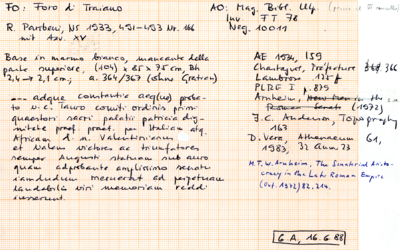 FO: Foro di Traiano
AO: Mag. Bibl. Ulp.
Inv. FT 78
Neg. 10011
R. Paribeni, NS 1933, 491-493 Nr. 166
mit Azv. XV
Base in marmo bianco, mancante della
parte superiore, (104) x 85 x 75 cm, Bh
2,4 → 2,1 cm; a. 364/367 (ohne Gratian)
--- adque constantia aeq(ue) proba-
to v.c. Tauro comiti ordinis primi
quaestori sacri palatii patricia dig-
nitate praef. praet. per Italiam atq.
Africam d.n. Valentinianus
et Valens victores ac triumfatores
semper Augusti statuam sub auro
quam adprobante amplissimo senatu
iamdudum meruerat ad perpetuam
laudabilis viri memoriam reddi
iusserunt.
AE 1934, 159
Chastagnol, Préfecture 366
Lambrou 125 f
PLRE I p. 879
Arnheim, in the
(1972)
J.C. Anderson, Topography
163
D. Vera, Athenaeum 61,
1983, 32 Anm 73
M.T.W. Arnheim, The Senatorial Aristo-
cracy in the Late Roman Empire
(Oxf. 1972) 82. 214.
GA, 16.6.88